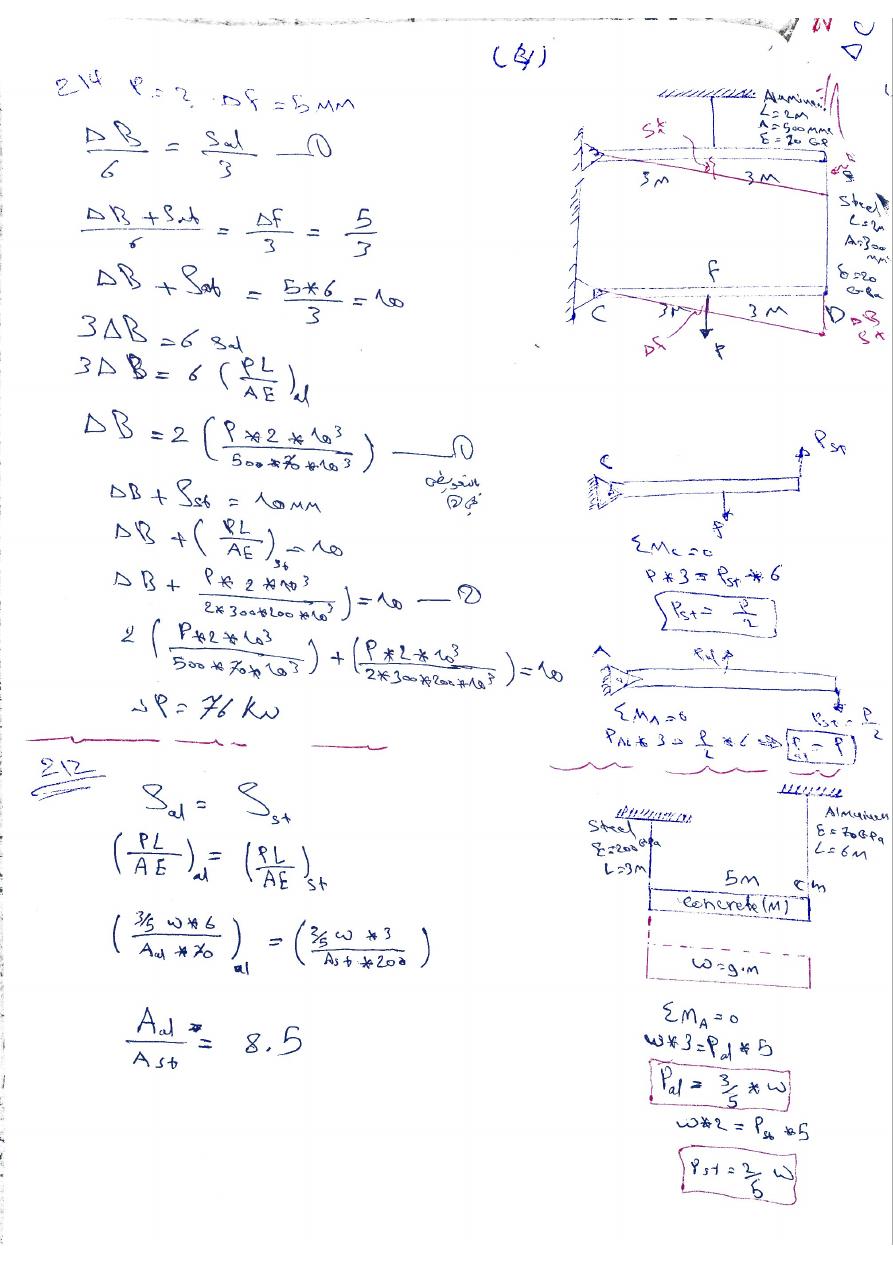 (4)
214 P=? Δf = 5 mm
ΔB/6 = δal/3 — ①
(ΔB + δst)/6 = Δf/3 = 5/3
ΔB + δst = 5*6/3 = 10
3ΔB = 6 δal
3ΔB = 6 (PL/AE)al
ΔB = 2 (P*2*10³/500*70*10³) — ①
بالتعويض
في ②
ΔB + δst = 10 mm
ΔB + (PL/AE)st = 10
ΔB + P*2*10³/2*300*200*10³) = 10 — ②
2 (P*2*10³/500*70*10³) + (P*2*10³/2*300*200*10³) = 10
P = 76 KN
Aluminum
L=2M
A=500mm
E=70 GP
3M 3M
Steel
L=2m
A=300
mm
E=20
GPa
F
C 3M 3M D
Δf P
ΔB
C Pst
P
ΣMc=0
P*3 = Pst*6
Pst = P/2
A Pal
Pst = P/2
ΣMA=0
PAL*3 = P/2 *6 ⇒ Pal = P
212
δal = δst
(PL/AE)al = (PL/AE)st
(3/5 w*6/Aal*70)al = (2/5 w*3/Ast*200)
Aal/Ast = 8.5
Steel
E=200GPa
L=3M
Almuinum
E=70GPa
L=6M
5M
concrete(M)
w=g.m
ΣMA=0
w*3=Pal*5
Pal = 3/5 * w
w*2 = Pst*5
Pst = 2/5 w